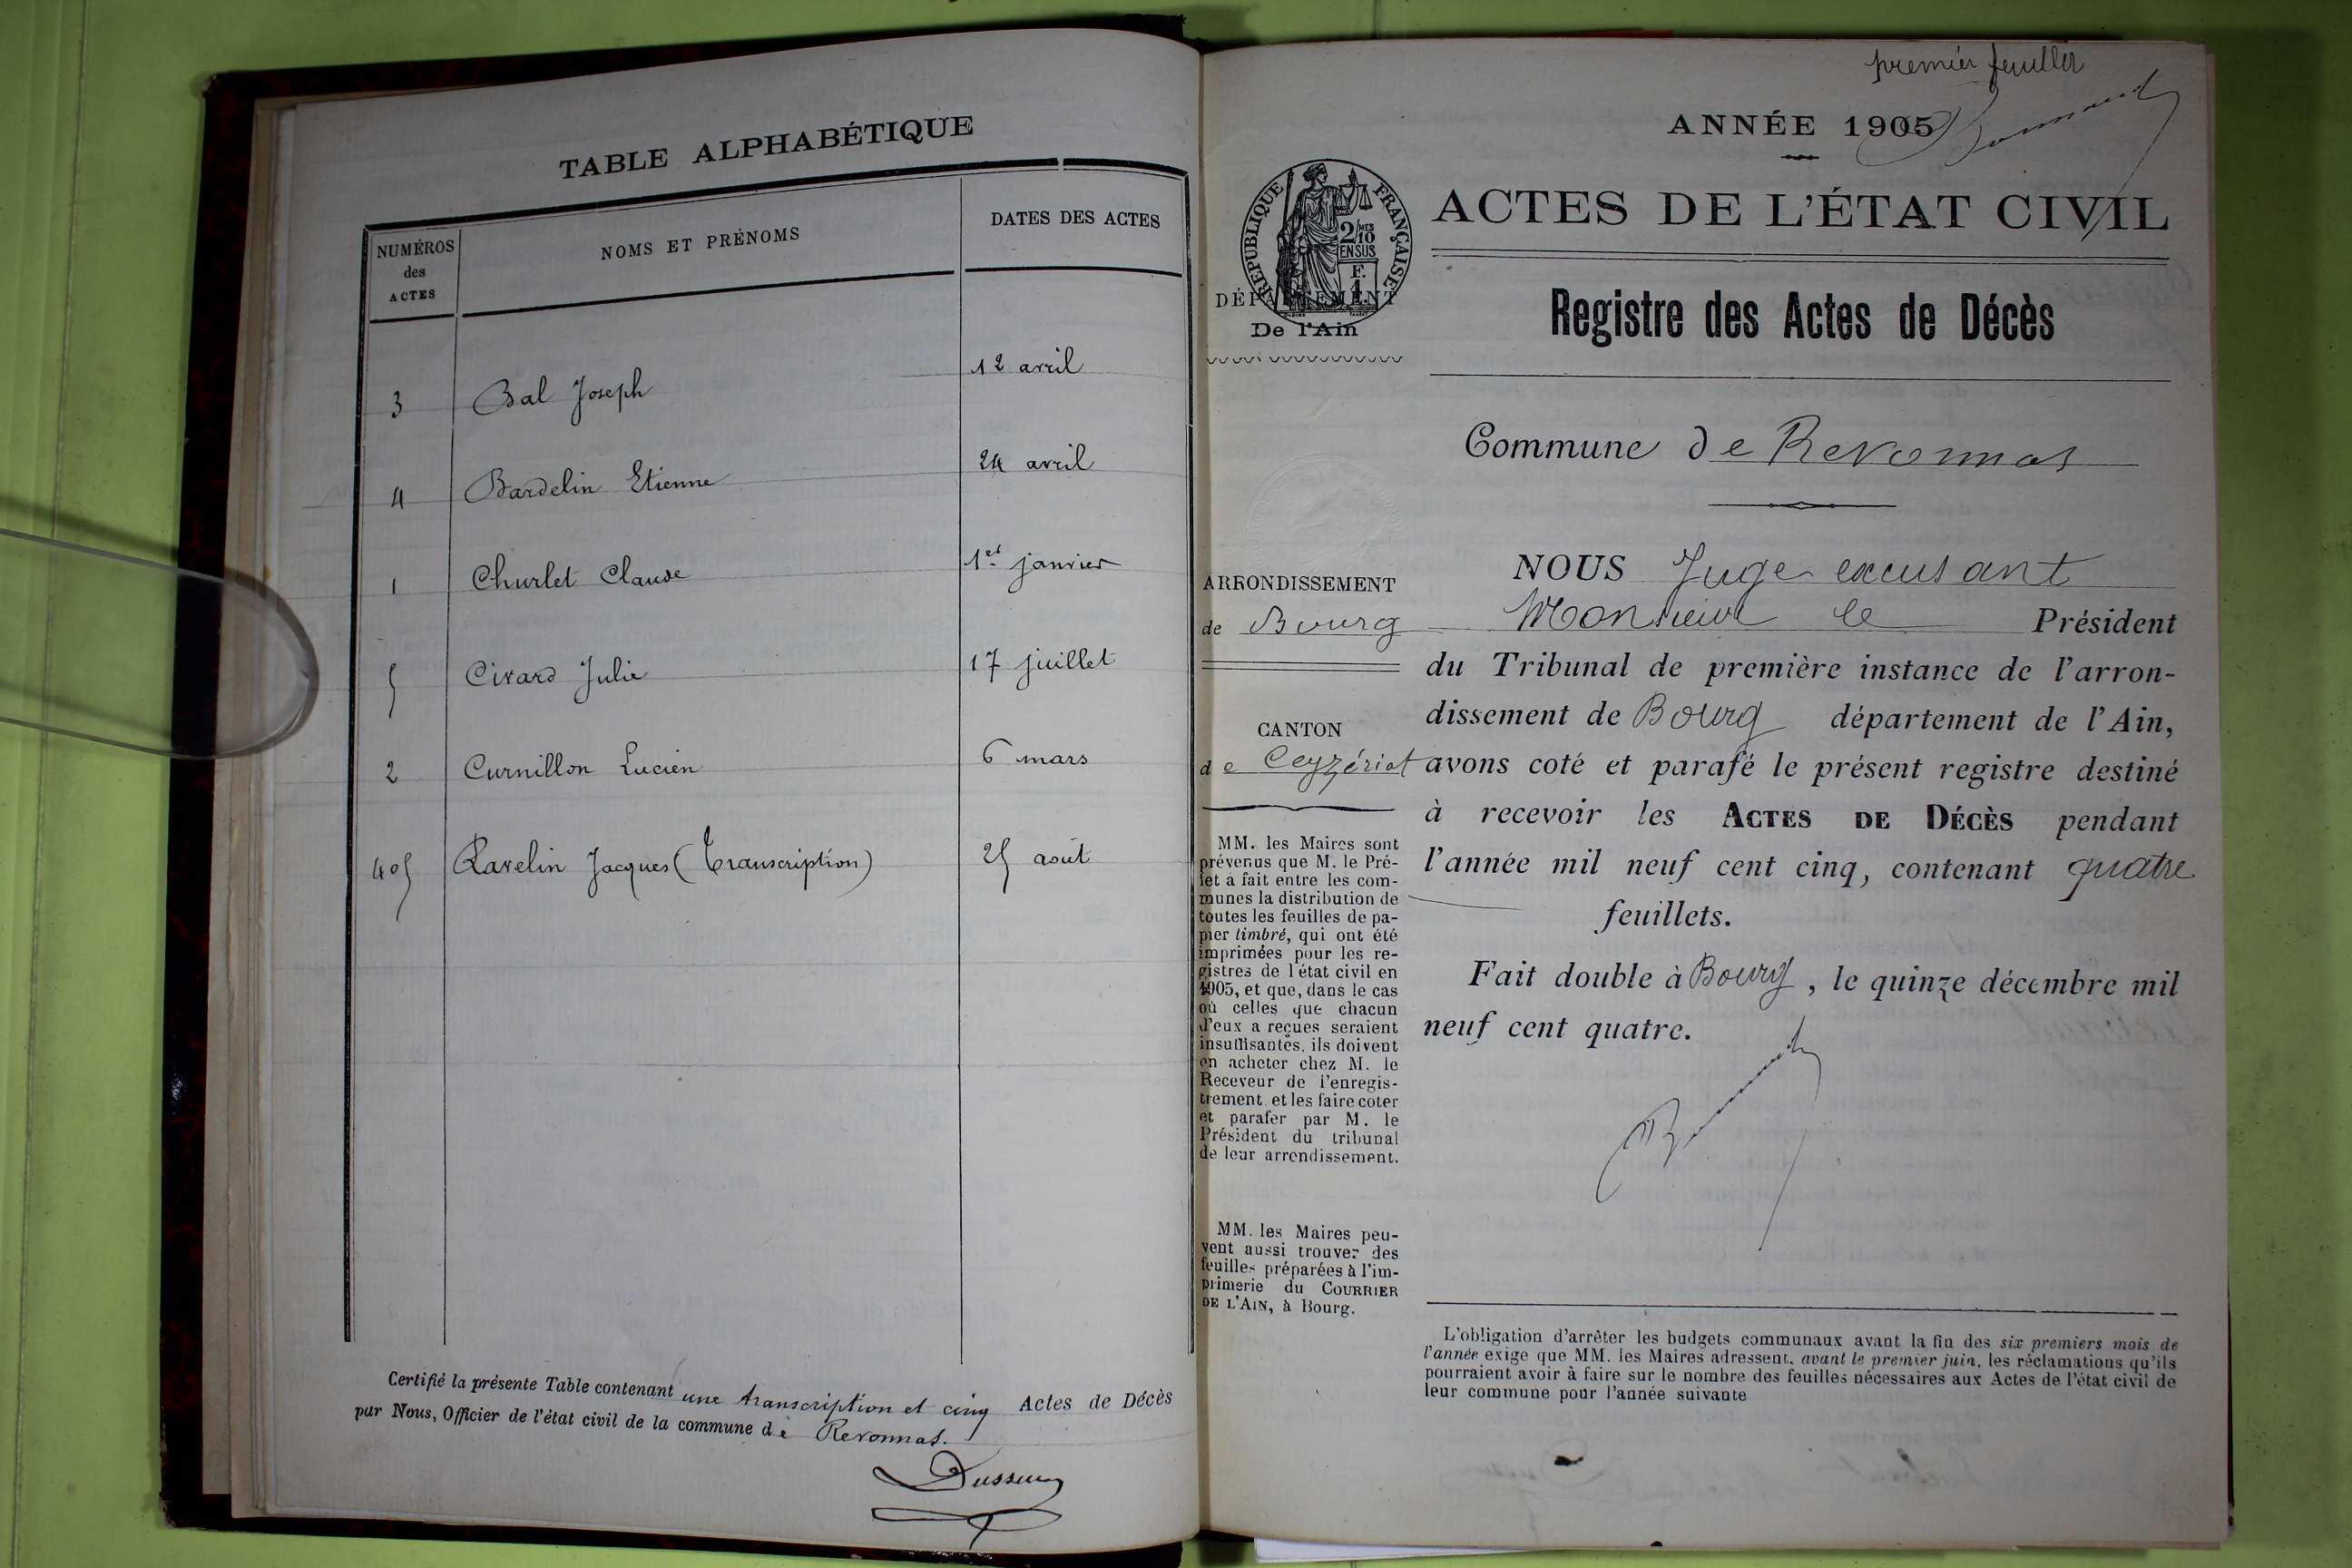 TABLE ALPHABÉTIQUE
NUMÉROS des ACTES
NOMS ET PRÉNOMS
DATES DES ACTES
3 Bal Joseph 12 avril
4 Bardelin Etienne 24 avril
1 Churlet Claude 1er janvier
5 Civard Julie 17 juillet
2 Curnillon Lucien 6 mars
405 Ravelin Jacques (Transcription) 25 août
Certifié la présente Table contenant une transcription et cinq Actes de Décès
par Nous, Officier de l'état civil de la commune de Revonnas.
premier feuillet
ANNÉE 1905
ACTES DE L'ÉTAT CIVIL
RÉPUBLIQUE FRANÇAISE
2/10MES
EN SUS
F.
1.
DÉPARTEMENT
De l'Ain
Registre des Actes de Décès
Commune de Revonnas
ARRONDISSEMENT
de Bourg
CANTON
de Ceyzériat
MM. les Maires sont
prévenus que M. le Pré-
fet a fait entre les com-
munes la distribution de
toutes les feuilles de pa-
pier timbré, qui ont été
imprimées pour les re-
gistres de l'état civil en
1905, et que, dans le cas
où celles que chacun
d'eux a reçues seraient
insuffisantes, ils doivent
en acheter chez M. le
Receveur de l'enregis-
trement et les faire coter
et parafer par M. le
Président du tribunal
de leur arrondissement.
MM. les Maires peu-
vent aussi trouver des
feuilles préparées à l'im-
primerie du COURRIER
DE L'AIN, à Bourg.
NOUS Juge excusant
Monsieur le Président
du Tribunal de première instance de l'arron-
dissement de Bourg département de l'Ain,
avons coté et parafé le présent registre destiné
à recevoir les ACTES DE DÉCÈS pendant
l'année mil neuf cent cinq, contenant quatre
feuillets.
Fait double à Bourg, le quinze décembre mil
neuf cent quatre.
L'obligation d'arrêter les budgets communaux avant la fin des six premiers mois de
l'année exige que MM. les Maires adressent, avant le premier juin, les réclamations qu'ils
pourraient avoir à faire sur le nombre des feuilles nécessaires aux Actes de l'état civil de
leur commune pour l'année suivante